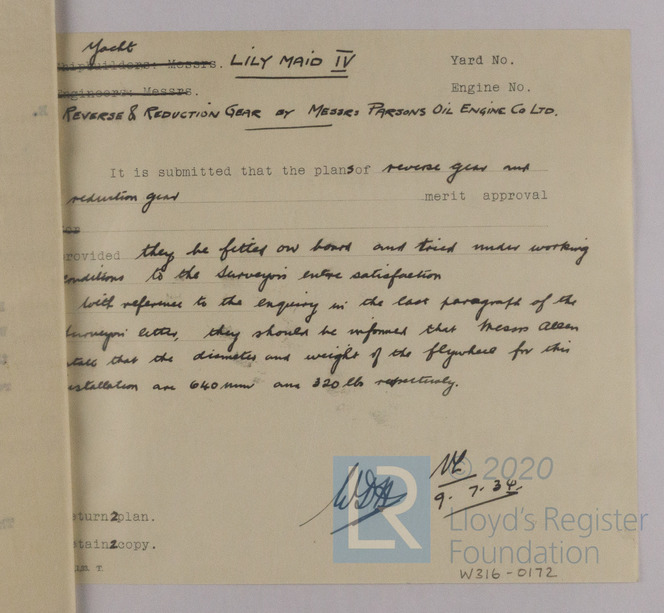 Yacht
Shipbuilders: Messrs. LILY MAID IV Yard No.
Engineers: Messrs. Engine No.
REVERSE & REDUCTION GEAR BY MESSRS PARSONS OIL ENGINE CO LTD.
It is submitted that the plans of reverse gear and
reduction gear merit approval
for
provided they be fitted on board and tried under working
conditions to the Surveyors entire satisfaction
With reference to the enquiry in the last paragraph of the
Surveyors letter, they should be informed that Messrs Allen
state that the diameter and weight of the flywheel for this
installation are 640mm and 320 lbs respectively.
WDH
9.7.34.
eturn 2 plan.
etain 2 copy.
T.
© 2020
LR
Lloyd's Register
Foundation
W316-0172